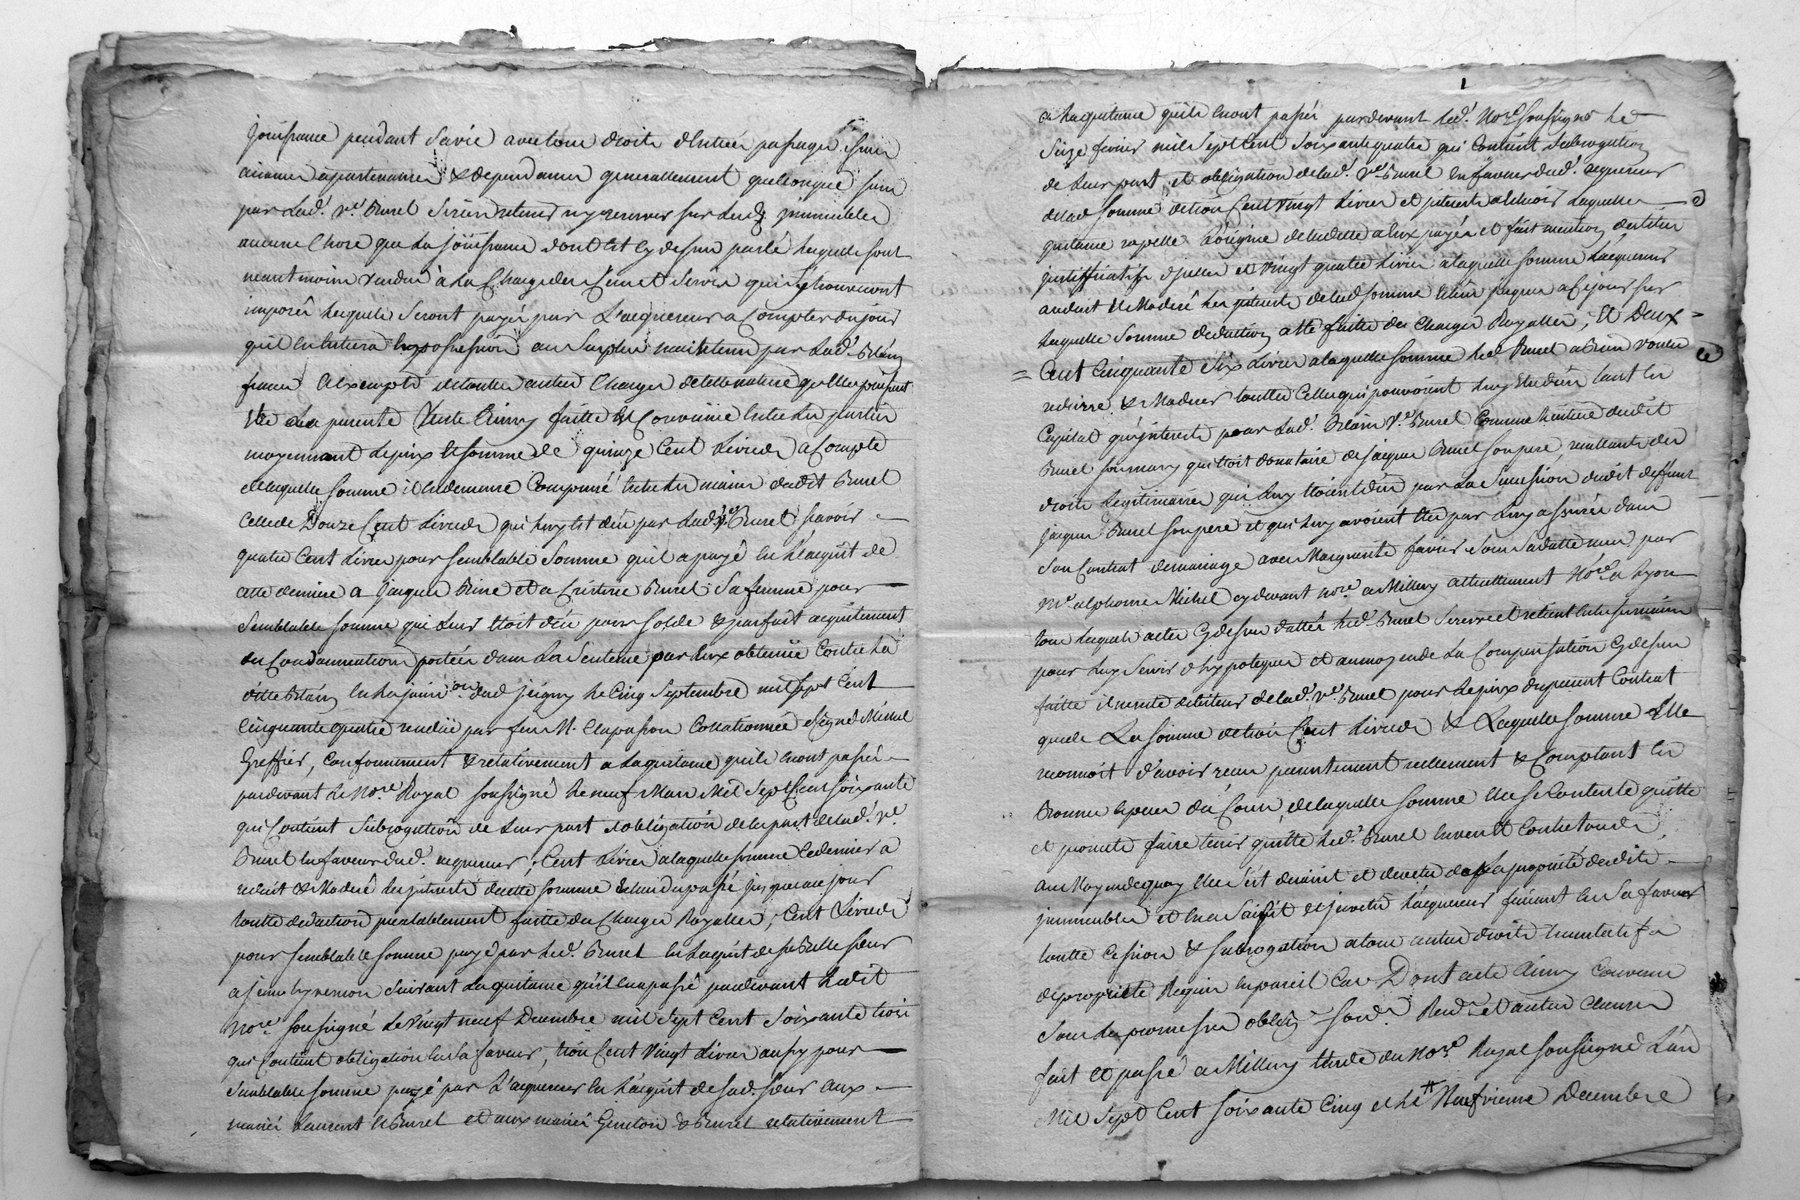 jouissance pendant sa vie avec tous droits d'entrée passages
aisances apartenances & dependances generallement quelconques
par lad.e v.e Burel sans retenir ny reserver sur lesd.
aucune chose que la jouissance dont est cy dessus parlé lesquels sont
neantmoins vendus à la charge des cens et servis qui s'y trouveront
imposés lesquels seront payés par l'acquereur a compter du jour
qu'il entrera en possession au surplus maintenus par lad.e
francs & exempts de toutes autres charges de telle nature qu'elles puissent
la presente vente ainsy faitte & convenüe entre les parties
moyennant le prix & somme de quinze cent livres a compte
de laquelle somme il en demeure compensé entre les mains dudit Burel
celle de Douze cent livres qui luy est deüe par lad.e v.e Burel sçavoir
quatre cent livres pour semblable somme qu'il a payé en l'acquit de
cette derniere a Jaques et a Burel sa femme pour
semblable somme qui leur etoit deüe pour solde & parfait acquittement
des condamnations portées dans la sentence par eux obtenüe contre la
ditte en la juridi.on dud. le cinq septembre mil sept cent
cinquante quatre rendüe par feu M. Clapasson collationnée signé Michel
Greffier, conformement & relativement a la quitance qu'ils en ont passée
pardevant le No.re Royal soussigné le neuf Mars Mil sept cent soixante
qui contient subrogation de leur part & obligation de la part de lad.e v.e
Burel en faveur dud. acquereur; cent livres a laquelle somme ce dernier a
reduit & moderé les interets de cette somme de tems du passé jusques a ce jour
toutte deduction prealablement faitte des charges Royalles; cent livres
pour semblable somme payé par led. Burel en l'acquit de sa Belle sœur
a suivant la quitance qu'il en a passé pardevant ledit
No.re soussigné le vingt neuf Decembre mil sept cent soixante trois
qui contient obligation en sa faveur, trois cent vingt livres aussy pour
semblable somme payé par l'acquereur en l'acquit de sad. sœur aux
mariés Laurent & Burel et aux mariés & Burel relativement
a la quitance qu'ils en ont passée pardevant led. No.re soussigné le
seize fevrier mil sept cent soixante quatre qui contient subrogation
de leur part et obligation de lad.e v.e Burel en faveur dud. acquereur
de lad. somme de trois cent vingt livres et interets a laquelle
quitance rapelle l'origine de la dette a eux payée et fait mention des titres
justifficatifs d'icelle et vingt quatre livres a laquelle somme l'acquereur
a reduit & moderé les interets de lad. somme jusques a ce jour sur
laquelle somme deduction a été faitte des charges Royalles; Et Deux =
= cent cinquante six livres a laquelle somme led. Burel a bien voulu
reduire & moderer touttes celles qui pouvoient luy etre dües tant en
capital qu'interets pour lad.e v.e Burel comme heritiere dudit
Burel son mary qui etoit donataire de jacques Burel son pere, resultante des
droits legitimaires qui luy etoient dus par la succession dudit deffunt
jacques Burel son pere et qui luy avoient été par luy assurés dans
son contrat de mariage avec Marguerite Favier sous sa datte reçu par
M.e alphonse Michel cy devant no.re a Millery actuellement No.re a Lyon
tous lesquels actes cy dessus dattés led. Burel se reserve et retient entre ses mains
pour luy servir d'hypoteque et au moyen de la compensation cy dessus
faitte il ne reste debiteur de lad.e v.e Burel pour le prix du present contrat
que de la somme de trois cent livres & laquelle somme elle
reconnoit d'avoir reçue presentement reellement & comptant en
bonnes especes du cours, de laquelle somme elle se contente quitte
et promet faire tenir quitte led. Burel envers & contre tous,
au moyen de quoy elle s'est demise et devetüe de la proprieté desdits
immeubles et en a saisit & investu l'acquereur faisant en sa faveur
toutte cession & subrogation a tous autres droits translatifs
de proprieté Requis en pareil cas Dont acte Ainsy convenu
sous les promesses oblig. soum. Ren. et autres clauses
fait et passé a Millery etude du No.re Royal soussigné L'an
Mil sept cent soixante cinq et le Neufvieme Decembre